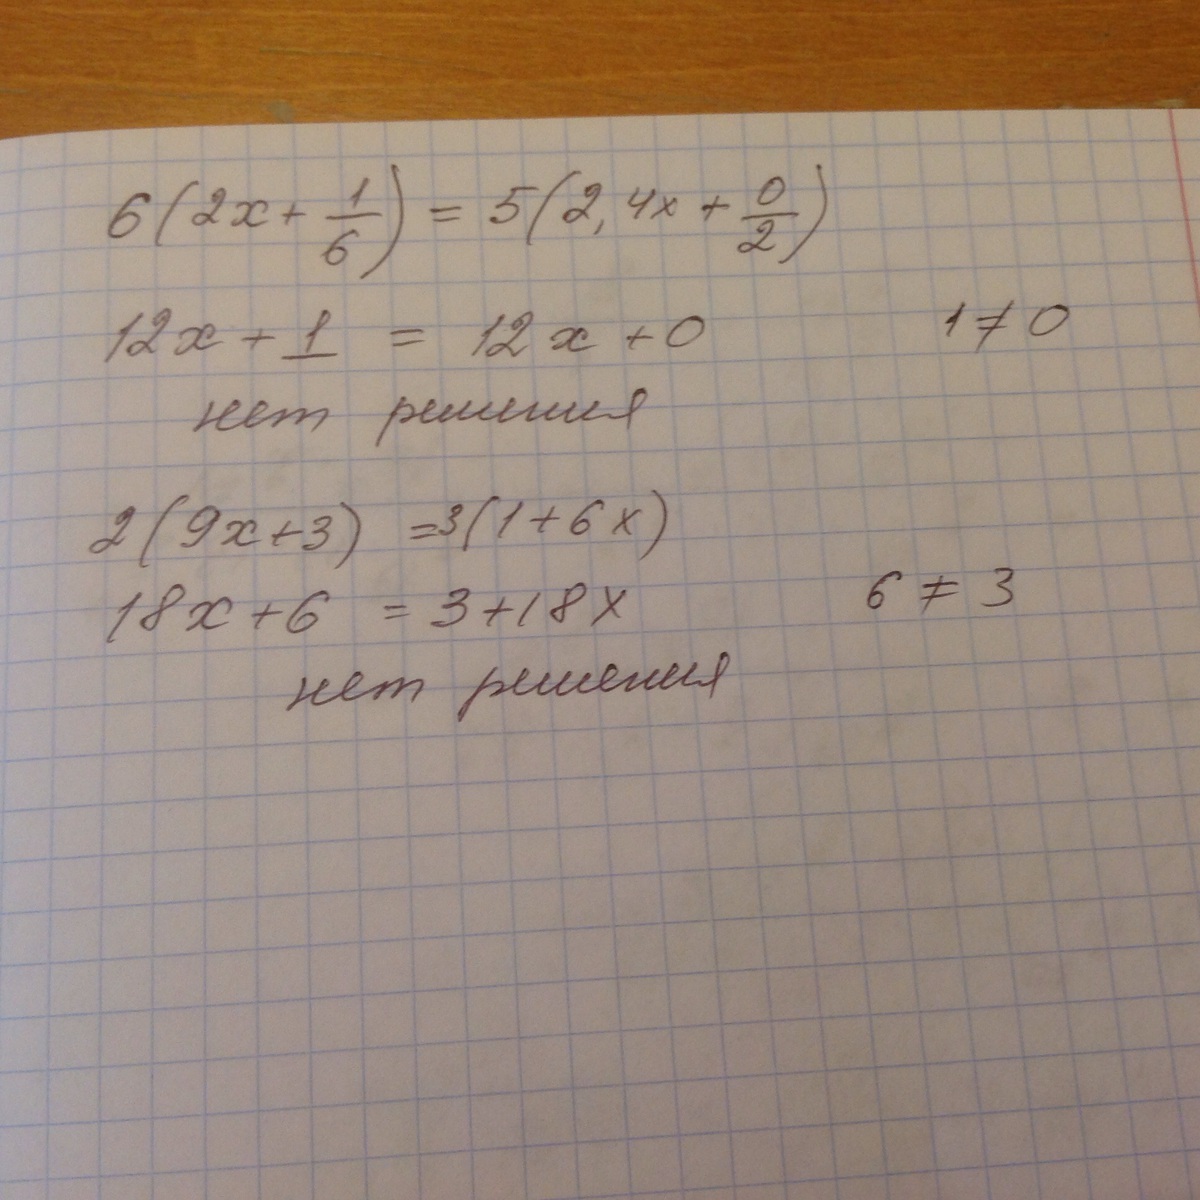 6(2x + 1/6) = 5(2,4x + 0/2)
12x + 1 = 12x + 0 1 ≠ 0
нет решения
2(9x+3) =3(1+6x)
18x+6 = 3+18x 6 ≠ 3
нет решения